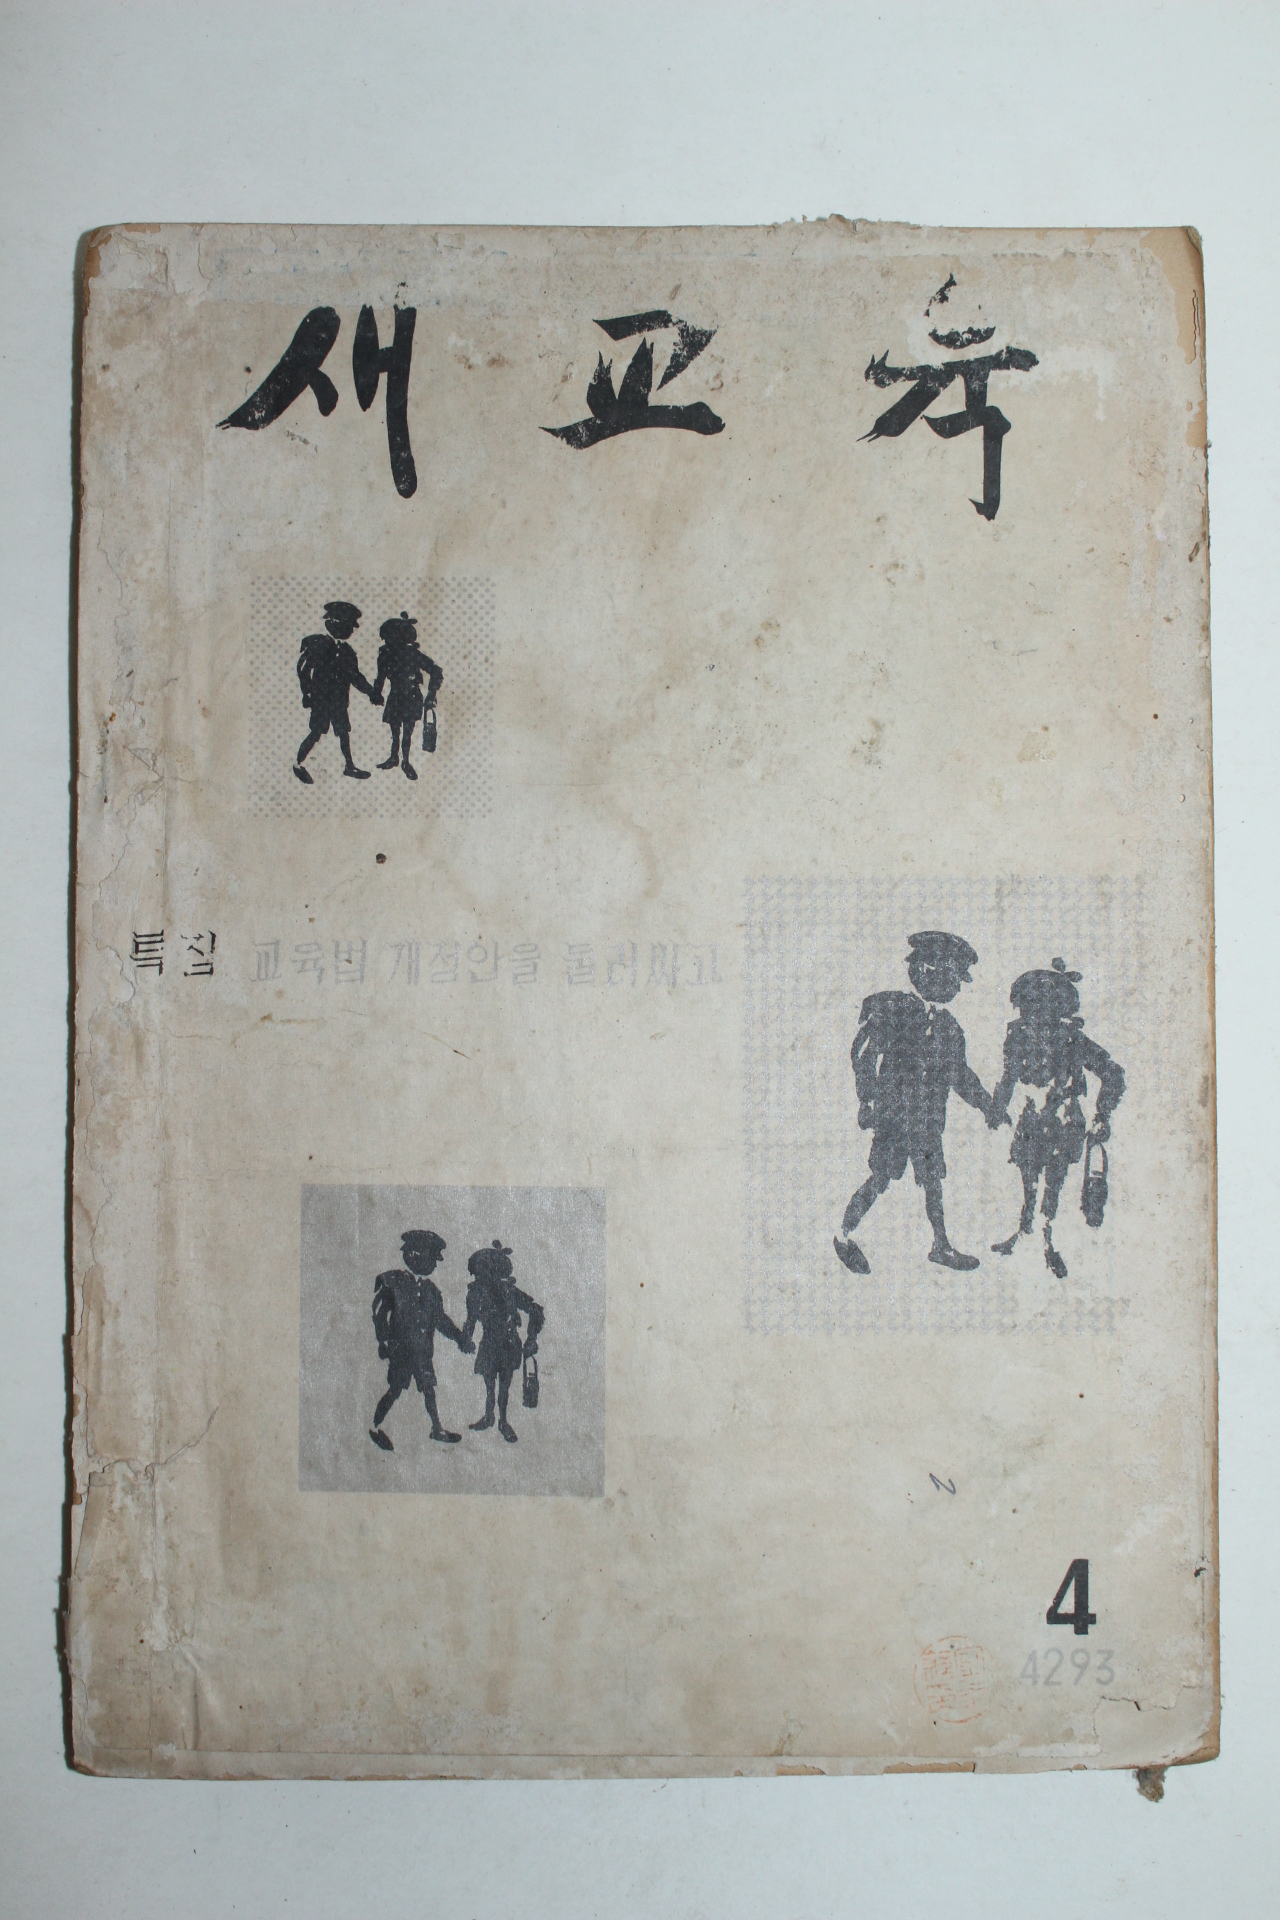 새교육
특집 교육법 개정안을 둘러싸고
2
4
4293